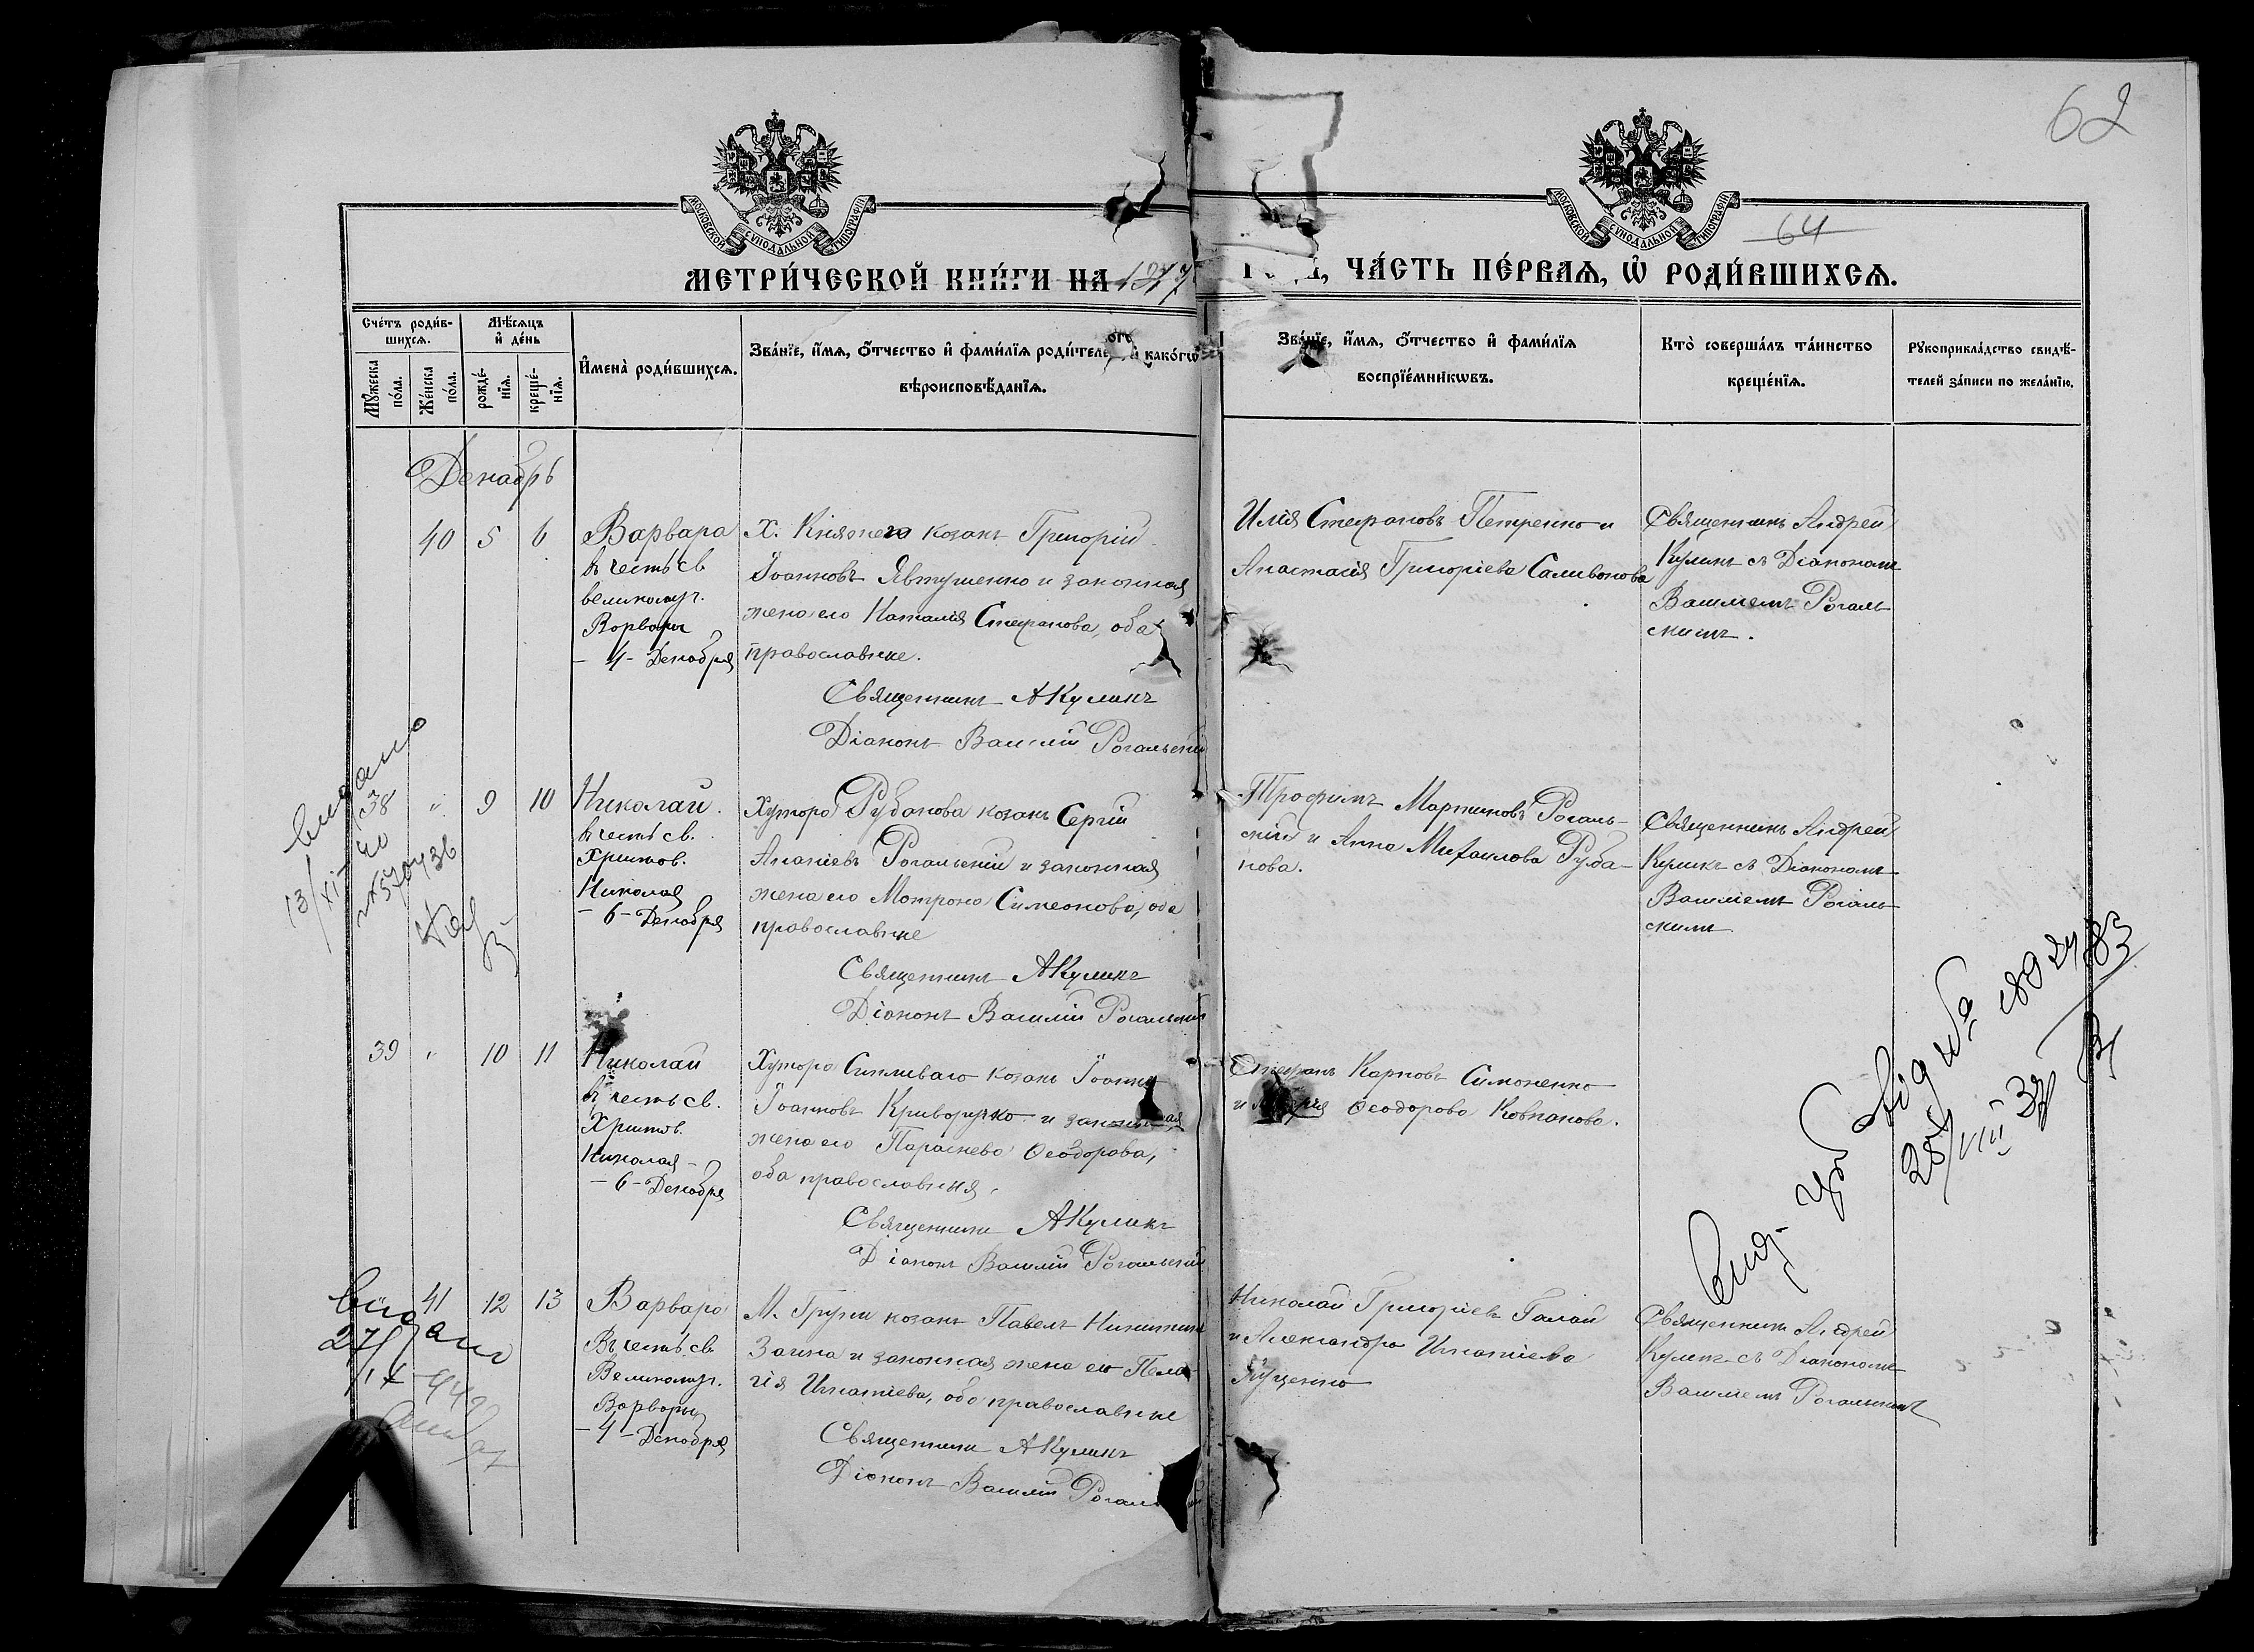 62
64
МОСКОВСКОЙ СѴНОДАЛЬНОЙ ТИПОГРАФІИ
МОСКОВСКОЙ СѴНОДАЛЬНОЙ ТИПОГРАФІИ
МЕТРИ́ЧЕСКОЙ КНИ́ГИ НА
ЧА́СТЬ ПЕ́РВАѦ, Ѡ҆ РОДИ́ВШИХСѦ.
Сче́тъ роди́в-
шихсѧ.
Мѣ́сѧцъ
и҆ де́нь
Мꙋ́жеска
по́ла.
Же́нска
по́ла.
рожде́-
нїѧ.
креще́-
нїѧ.
И҆мена̀ роди́вшихсѧ.
Зва́нїе, и҆́мѧ, ѻ҆́тчество и҆ фами́лїѧ роди́теле и҆ како́гѡ
вѣроисповѣ́данїѧ.
Зва́нїе, и҆́мѧ, ѻ҆́тчество и҆ фами́лїѧ
воспрїе́мникѡвъ.
Кто̀ соверша́лъ та́инство
креще́нїѧ.
Рꙋкоприкла́дство свидѣ́-
телей за́писи по жела́нїю.
Декабрь
40 5 6
Варвара
въ честь св.
великомуч.
Варвары
- 4 - Декабря
Х. Княжего козакъ Григорій
Іоанновъ Явтушенко и законная
жена его Наталія Стефанова, оба
православные.
Священникъ А Куликъ
Діаконъ Василій Рогальскій
Илія Стефановъ Петренко и
Анастасія Григоріева Саливонова
Священникъ Андрей
Куликъ съ Діакономъ
Василіемъ Рогаль
скимъ.
видано
13/XI 40
№570436
38 " 9 10
Николай.
въ честь св.
Христов.
Николая
- 6 - Декабря
Хутора Рубанова козакъ Сергій
Ананіевъ Рогальскій и законная
жена его Матрона Симеонова, оба
православные
Священникъ А Куликъ
Діаконъ Василій Рогальскій
Трофимъ Мартиновъ Рогаль-
скій и Анна Михаилова Руба-
нова.
Священникъ Андрей
Куликъ съ Діакономъ
Василіемъ Рогаль
скимъ
39 " 10 11
Николай
въ честь св.
Христов.
Николая -
- 6 - Декабря
Хутора Сипливаго козакъ Іоаннъ
Іоанновъ Криворучко и законная
жена его Параскева Ѳеодорова,
оба православныя.
Священникъ А Куликъ
Діаконъ Василій Рогальскій
Стефанъ Карповъ Симоненко
и Ѳеодорова Ковпакова.
28/VIII 39
видано
27/
41 12 13
Варвара
Въ честь св
Великомуч.
Варвары
- 4 - Декабря
М. Груни козакъ Павелъ Никитинъ
Заика и законная жена его Пела
гія Игнатіева, оба православные
Священникъ А Куликъ
Діаконъ Василій Рогаль
Николай Григоріевъ Галай
и Александра Игнатіева
Яценко
Священникъ Андрей
Куликъ съ Діакономъ
Василіемъ Рогальскимъ